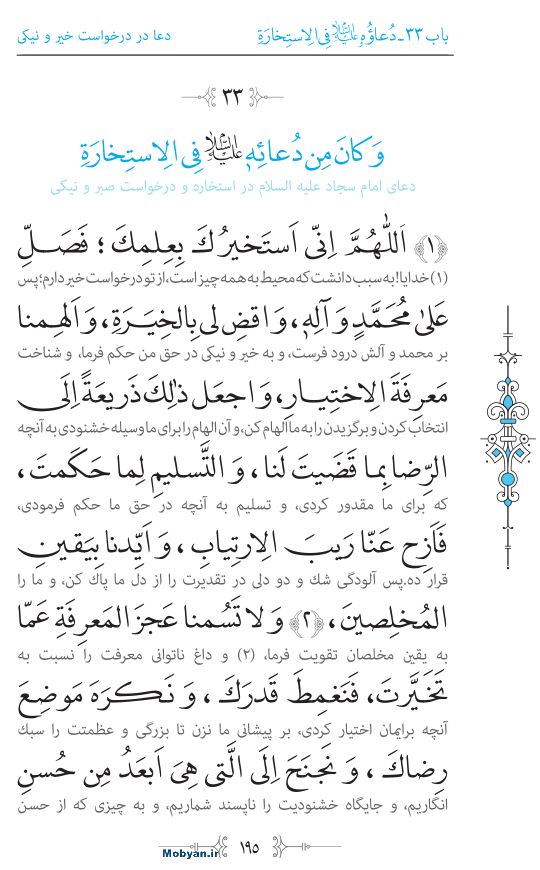 باب ۳۳ـ دُعاؤُهُ عليه السلام فِى الِاستِخارَةِ
دعا در درخواست خیر و نیکی
۳۳
وَ كانَ مِن دُعائِهِ عليه السلام فِى الِاستِخارَةِ
دعای امام سجاد علیه السلام در استخاره و درخواست صبر و نیکی
﴿۱﴾ اَللّٰهُمَّ اِنّى اَستَخيرُكَ بِعِلمِكَ ؛ فَصَلِّ
(۱) خدایا! به سبب دانشت که محیط به همه چیز است، از تو درخواست خیر دارم؛ پس
عَلىٰ مُحَمَّدٍ وَ آلِهِ، وَ اقضِ لى بِالخِيَرَةِ، وَ اَلهِمنا
بر محمد و آلش درود فرست، و به خیر و نیکی در حق من حکم فرما، و شناخت
مَعرِفَةَ الِاختِيارِ، وَ اجعَل ذٰلِكَ ذَريعَةً اِلَى
انتخاب کردن و برگزیدن را به ما الهام کن، و آن الهام را برای ما وسیله خشنودی به آنچه
الرِّضا بِما قَضَيتَ لَنا ، وَ التَّسليمِ لِما حَكَمتَ ،
که برای ما مقدور کردی، و تسلیم به آنچه در حق ما حکم فرمودی،
فَاَزِح عَنّا رَيبَ الِارتِيابِ ، وَ اَيِّدنا بِيَقينِ
قرار ده. پس آلودگی شك و دو دلی در تقدیرت را از دل ما پاك کن، و ما را
المُخلِصينَ ، ﴿۲﴾ وَ لا تَسُمنا عَجزَ المَعرِفَةِ عَمّا
به یقین مخلصان تقویت فرما، (۲) و داغ ناتوانی معرفت را نسبت به
تَخَيَّرتَ، فَنَغمِطَ قَدرَكَ ، وَ نَكرَهَ مَوضِعَ
آنچه برایمان اختیار کردی، بر پیشانی ما نزن تا بزرگی و عظمتت را سبك
رِضاكَ ، وَ نَجنَحَ اِلَى الَّتى هِىَ اَبعَدُ مِن حُسنِ
انگاریم، و جایگاه خشنودیت را ناپسند شماریم، و به چیزی که از حسن
۱۹۵
Mobyan.ir